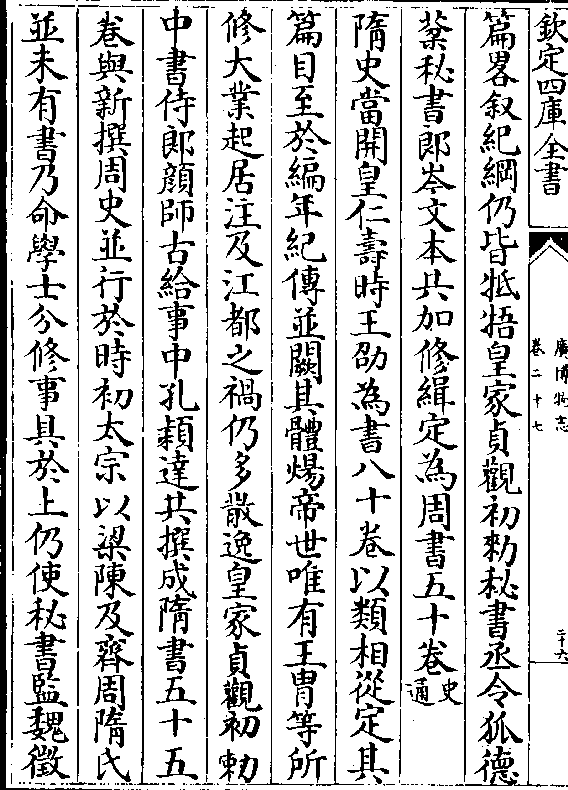 欽定四庫全書
廣博物志
卷二十七
二十六
篇畧叙紀綱仍皆牴牾皇家貞觀初勑秘書丞令狐德
棻秘書郎岑文本共加修緝定為周書五十卷史通
隋史當開皇仁壽時王劭為書八十卷以類相從定其
篇目至於編年紀傳並闕其體煬帝世唯有王胄等所
修大業起居注及江都之禍仍多散逸皇家貞觀初勑
中書侍郎顔師古給事中孔穎達共撰成隋書五十五
卷與新撰周史並行於時初太宗以梁陳及齊周隋氏
並未有書乃命學士分修事具於上仍使秘書監魏徵